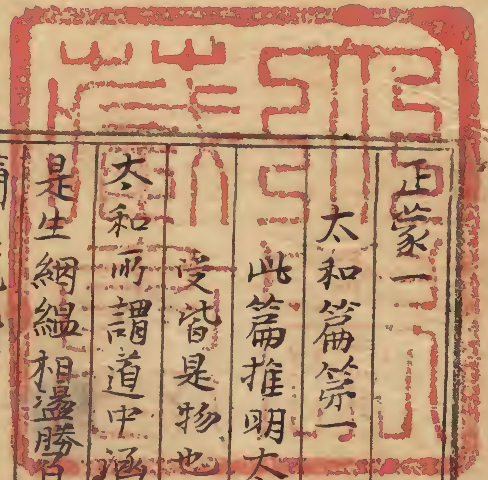 正蒙一
太和篇第一
此篇推明太
受皆是物也
太和所謂道中涵
是生絪縕相盪勝